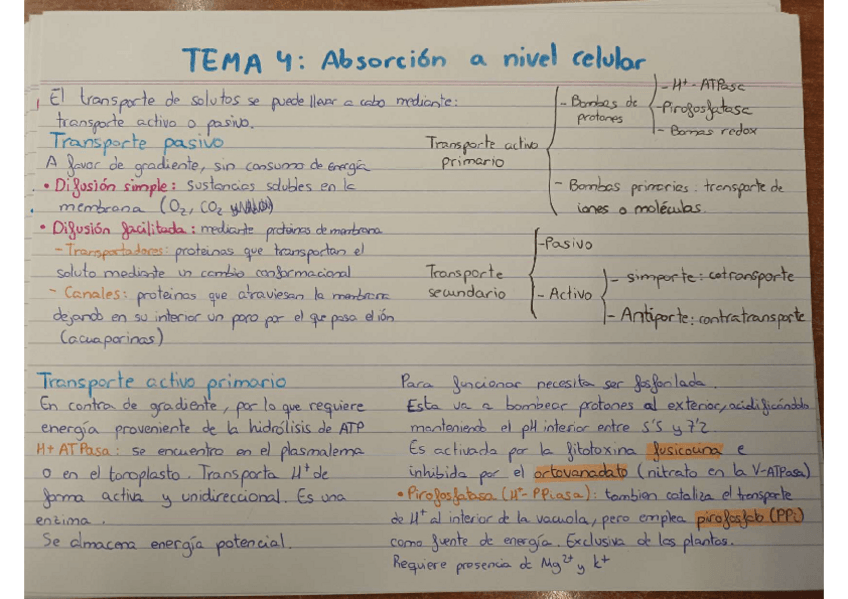 TEMA 4: Absorción a nivel celular
El transporte de solutos se puede llevar a cabo mediante:
transporte activo o pasivo.
Transporte pasivo
A favor de gradiente, sin consumo de energía
• Difusión simple: sustancias solubles en la
membrana (O2, CO2 y
• Difusión facilitada: mediante proteínas de membrana
- Transportadores: proteínas que transportan el
soluto mediante un cambio conformacional
- Canales: proteínas que atraviesan la membrana
dejando en su interior un poro por el que pasa el ión
(acuaporinas)
Transporte activo
primario
- Bombas de
protones
- H+ - ATPasa
- Pirofosfatasa
- Bomas redox
- Bombas primarias: transporte de
iones o moléculas.
Transporte
secundario
- Pasivo
- Activo
- simporte: cotransporte
- Antiporte: contratransporte
Transporte activo primario
En contra de gradiente, por lo que requiere
energía proveniente de la hidrólisis de ATP
H+ ATPasa: se encuentra en el plasmalema
o en el tonoplasto. Transporta H+ de
forma activa y unidireccional. Es una
enzima.
Se almacena energía potencial.
Para funcionar necesita ser fosforilada.
Esta va a bombear protones al exterior, acidificándolo
manteniendo el pH interior entre 5'5 y 7'2.
Es activada por la fitotoxina fusicocina e
inhibida por el ortovanadato (nitrato en la V-ATPasa)
• Pirofosfatasa (H+- PPiasa): tambien cataliza el transporte
de H+ al interior de la vacuola, pero emplea pirofosfato (PPi)
como fuente de energía. Exclusiva de las plantas.
Requiere presencia de Mg2+ y k+